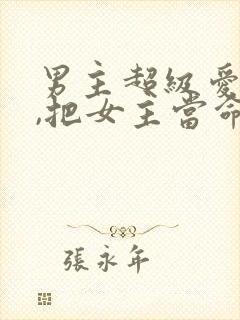 男主超級愛
,把女主當命
張永年